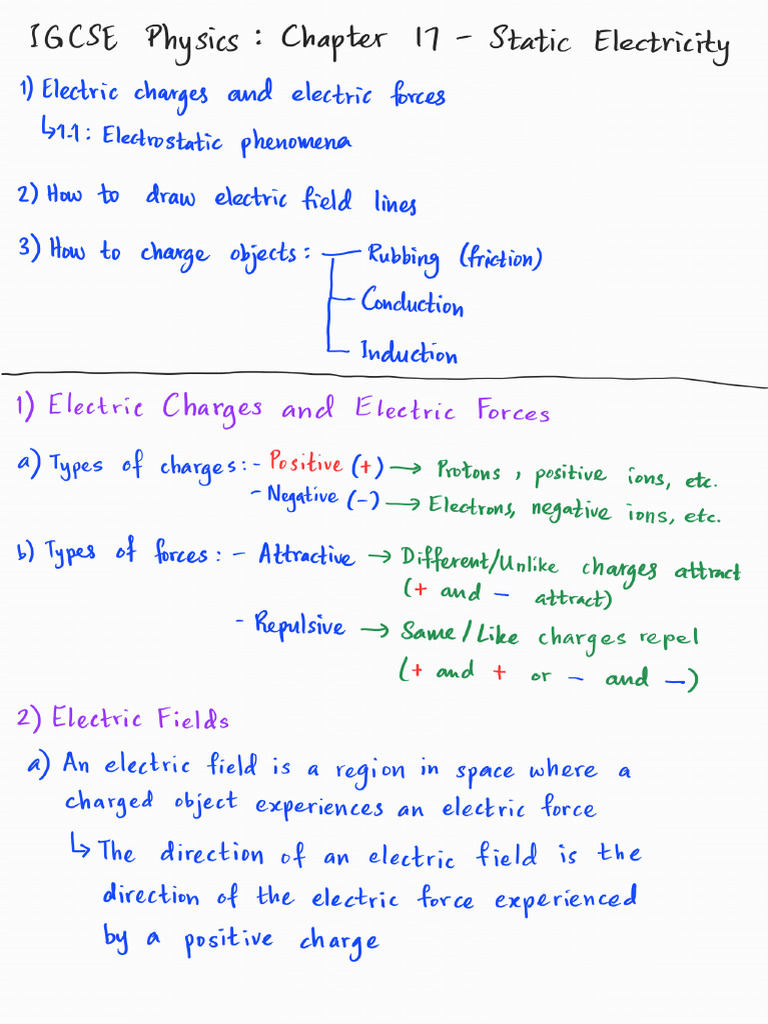 IGCSE Physics : Chapter 17 - Static Electricity
1) Electric charges and electric forces
↳1.1 : Electrostatic phenomena
2) How to draw electric field lines
3) How to charge objects : Rubbing (friction)
Conduction
Induction
1) Electric Charges and Electric Forces
a) Types of charges: - Positive (+) → Protons, positive ions, etc.
- Negative (-) → Electrons, negative ions, etc.
b) Types of forces : - Attractive → Different/Unlike charges attract
(+ and - attract)
- Repulsive → Same/Like charges repel
(+ and + or - and -)
2) Electric Fields
a) An electric field is a region in space where a
charged object experiences an electric force
↳ The direction of an electric field is the
direction of the electric force experienced
by a positive charge